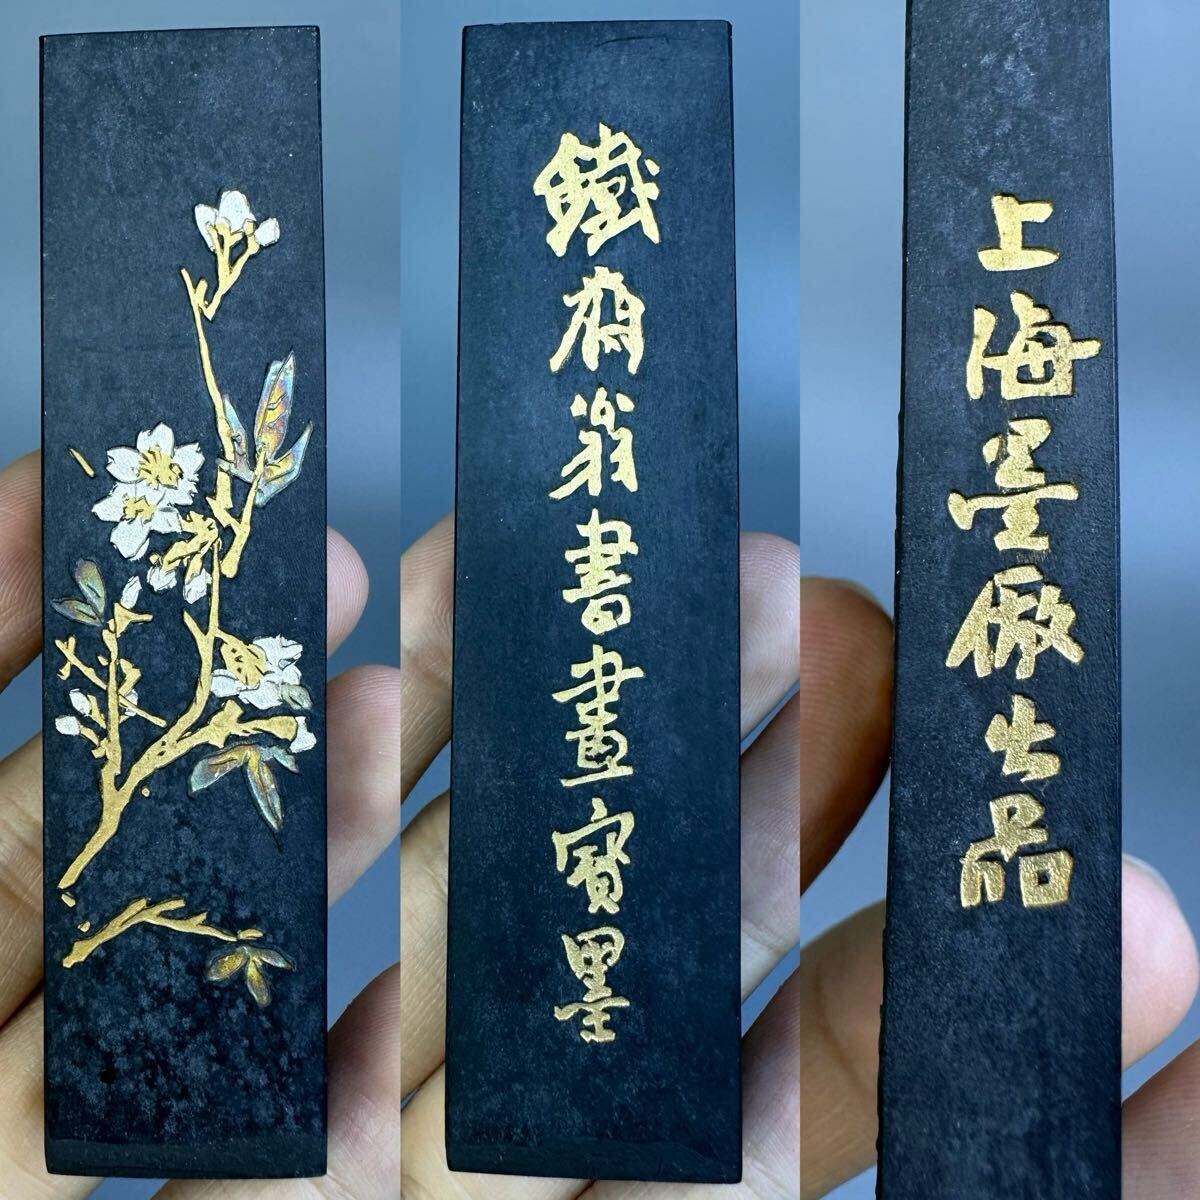 鐵斎翁書畫寶墨
上海墨厰出品